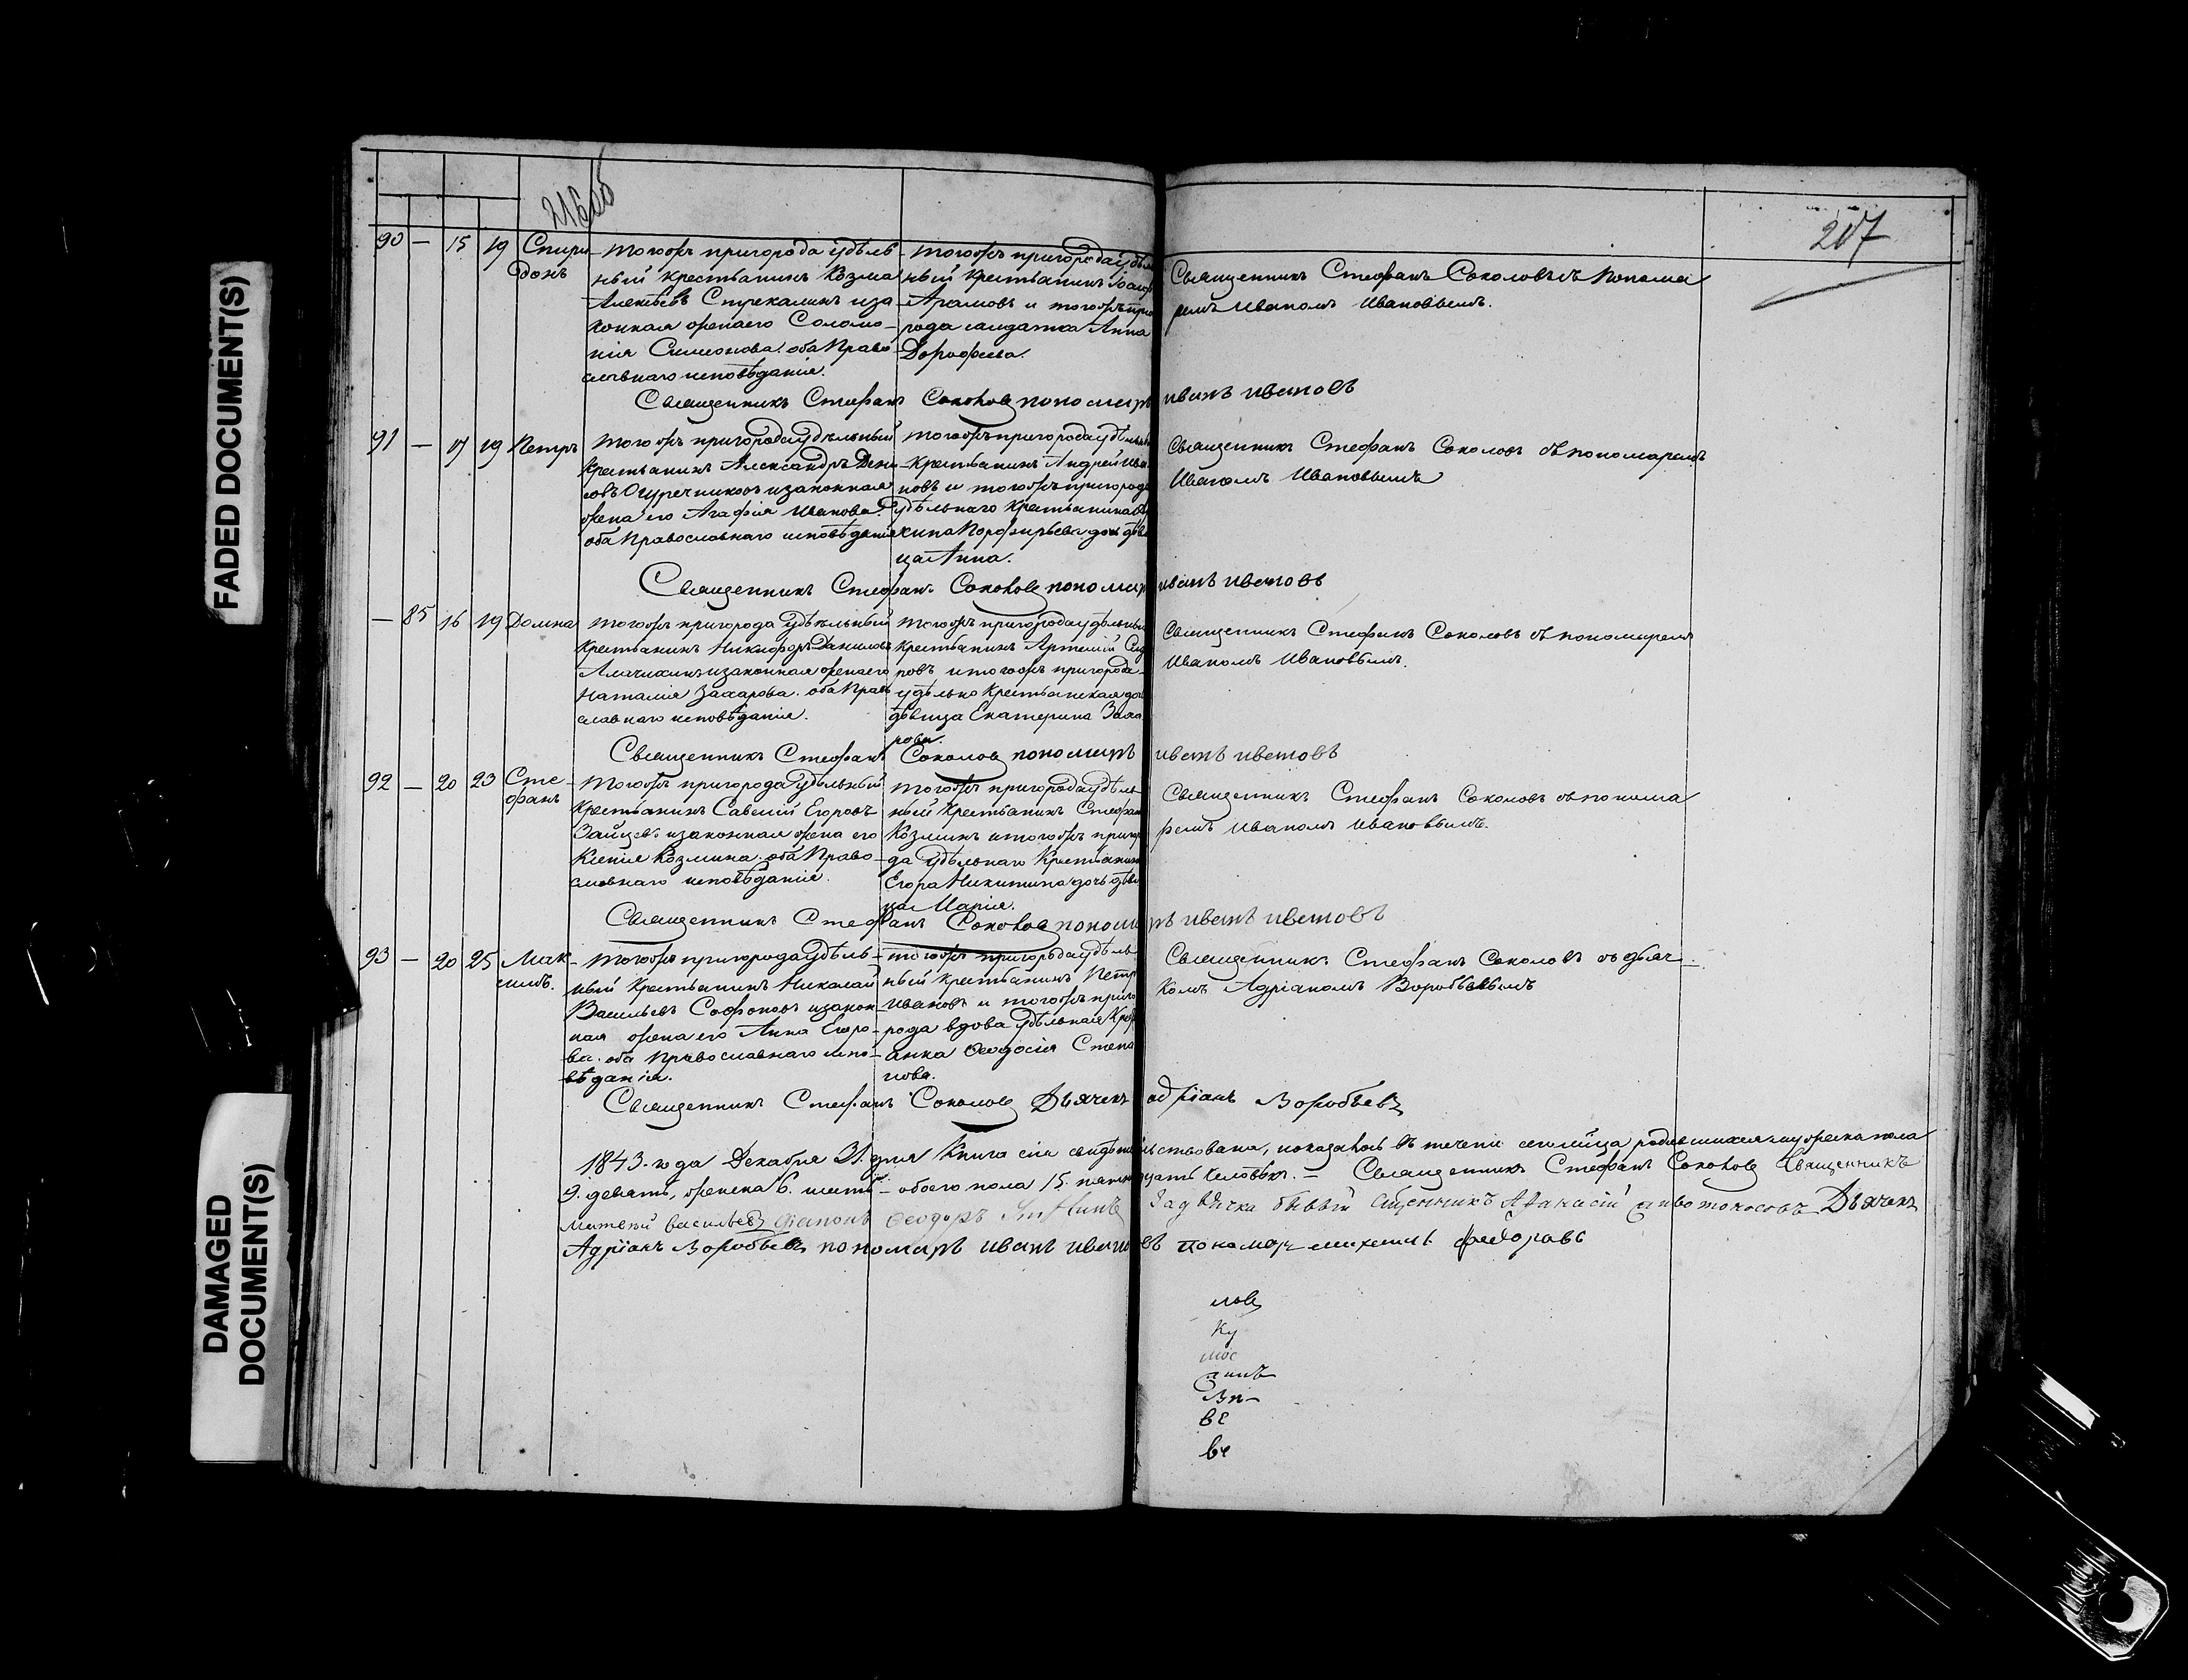 FADED DOCUMENT(S)
DAMAGED DOCUMENT(S)
207
90 — 15 19 Спири
донъ
тогожъ пригорода удѣль
ный крестьянинъ Козма
Алексѣевъ Стрекалинъ иза
конная жена его Соломо
нія Симеонова. оба Право
славнаго исповѣданія.
тогожъ пригорода удѣль
ный крестьянинъ
и тогожъ приго
рода салдатка Анна
Дорофѣева.
Священникъ Стефанъ Соколовъ съ понома
ремъ Иваномъ Ивановымъ.
Священникъ Стефанъ Соколовъ пономарь иванъ ивановъ
91 — 17 19 Петръ
тогожъ пригорода удѣльный
Крестьянинъ Александръ Дени
совъ Огуречниковъ изаконная
жена его Агафія Иванова.
оба Православнаго исповѣданія
тогожъ пригорода удѣльный
Крестьянинъ Андрей Ива
новъ и тогожъ пригорода
удѣльнаго Крестьянина
Порфирьева дочь дѣви
ца Анна.
Священникъ Стефанъ Соколовъ съ пономаремъ
Иваномъ Ивановымъ
Священникъ Стефанъ Соколовъ пономарь иванъ ивановъ
— 85 16 19 Домна
тогожъ пригорода Удѣльный
Крестьянинъ Никифоръ Даниловъ
изаконная жена его
Наталія Захарова. оба Право
славнаго исповѣданія.
тогожъ пригорода удѣльный
Крестьянинъ Артемій
ровъ и тогожъ пригорода
удѣльно Крестьянская дочь
дѣвица Екатерина Заха
рова.
Священникъ Стефанъ Соколовъ съ пономаремъ
Иваномъ Ивановымъ.
Священникъ Стефанъ Соколовъ пономарь иванъ ивановъ
92 — 20 23 Сте
фанъ
Тогожъ пригорода Удѣльный
Крестьянинъ Савелій Егоровъ
Зайцевъ изаконная жена его
Ксенія Козмина. оба Право
славнаго исповѣданія.
тогожъ пригорода удѣль
ный Крестьянинъ Стефанъ
Козминъ и тогожъ приго
да Удѣльнаго Крестьянина
Егора Никитина дочь дѣви
ца Марія.
Священникъ Стефанъ Соколовъ съ понома
ремъ Иваномъ Ивановымъ.
Священникъ Стефанъ Соколовъ пономарь иванъ ивановъ
93 — 20 25 Мак
симъ.
тогожъ пригорода Удѣль
ный Крестьянинъ Николай
Васильевъ Софоновъ изакон
ная жена его Анна Егоро
ва. оба Православнаго испо
вѣданія.
тогожъ пригорода удѣль
ный Крестьянинъ Петръ
Ивановъ и тогожъ приго
рода вдова удѣльная Крестья
анка Ѳеодосія Степа
нова.
Священникъ Стефанъ Соколовъ съ дьяч
комъ Адріаномъ Воробьевымъ
Священникъ Стефанъ Соколовъ Дьячекъ адріанъ Воробьевъ
1843. года Декабря 31. дня Книга сія свидѣтельствована, показалось въ теченіи сего м͠ца родившихся мужеска пола
9. девять, женска 6. шесть — обоего пола 15. пятнадцать человѣкъ. — Священникъ Стефанъ Соколовъ Священникъ
Матвѣй васильевъ Діаконъ Ѳеодоръ за дьячка бывый Священникъ Афанасій Дьячекъ
Адріанъ Воробьевъ пономарь иванъ ивановъ пономарь михаилъ федоровъ
ловъ
Ку
мос
Вп
ве
ве